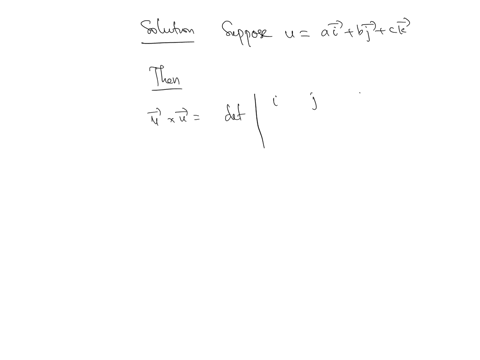 Solution Suppose u = a i⃗ + b j⃗ + c k⃗
Then
u⃗ × u⃗ = det | i j